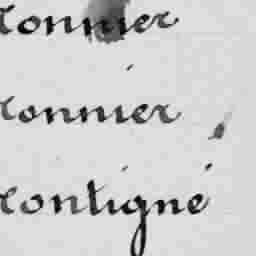 onnier
onnier
ontigné